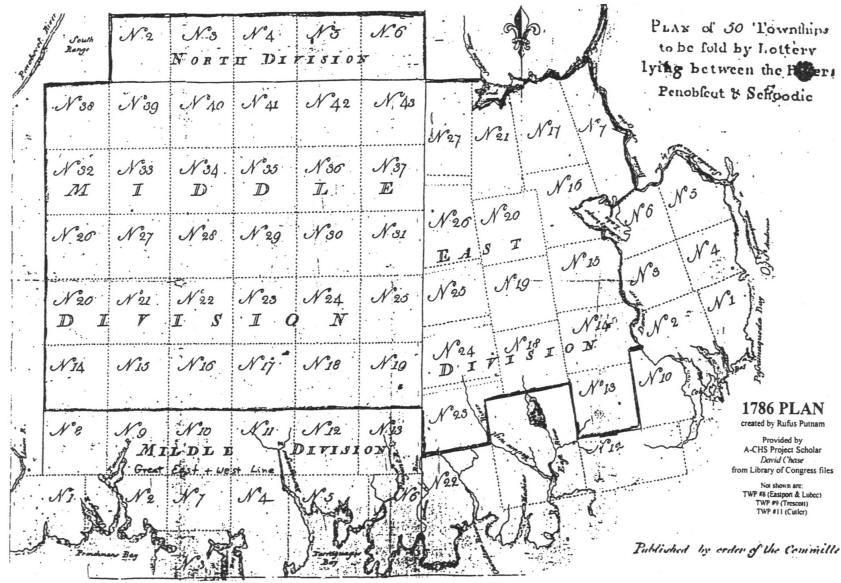 PLAN of 50 Townſhips
to be ſold by Lottery
lying between the Rivers
Penobſcut & Schoodic
Penobscut River
South
Range
Nº2 Nº3 Nº4 Nº5 Nº6
NORTH DIVISION
Nº38 Nº39 Nº40 Nº41 Nº42 Nº43
Nº32 Nº33 Nº34 Nº35 Nº36 Nº37
MIDDLE
Nº26 Nº27 Nº28 Nº29 Nº30 Nº31
Nº20 Nº21 Nº22 Nº23 Nº24 Nº25
DIVISION
Nº14 Nº15 Nº16 Nº17 Nº18 Nº19
Nº8 Nº9 Nº10 Nº11 Nº12 Nº13
MIDDLE DIVISION
Great East + West Line
Nº1 Nº2 Nº7 Nº4 Nº5 Nº6
Nº3
Frenchmans Bay
Bay
Nº27 Nº21 Nº17 Nº7
Nº16
Nº26 Nº20
EAST
Nº25 Nº19 Nº15
Nº24 Nº18 Nº14
DIVISION
Nº23 Nº13 Nº10
Nº22 Nº12
Nº6 Nº5
Nº3 Nº4
Nº2 Nº1
Paſſamaquoda Bay
1786 PLAN
created by Rufus Putnam
Provided by
A-CHS Project Scholar
David Chase
from Library of Congress files
Not shown are:
TWP #8 (Eastport & Lubec)
TWP #9 (Trescott)
TWP #11 (Cutler)
Publiſhed by order of the Committe